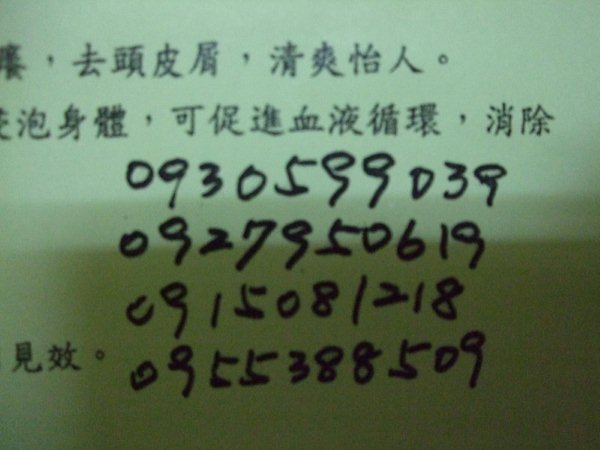 ，去頭皮屑，清爽怡人。
泡身體，可促進血液循環，消除
0930599039
0927950619
0915081218
見效。
0955388509